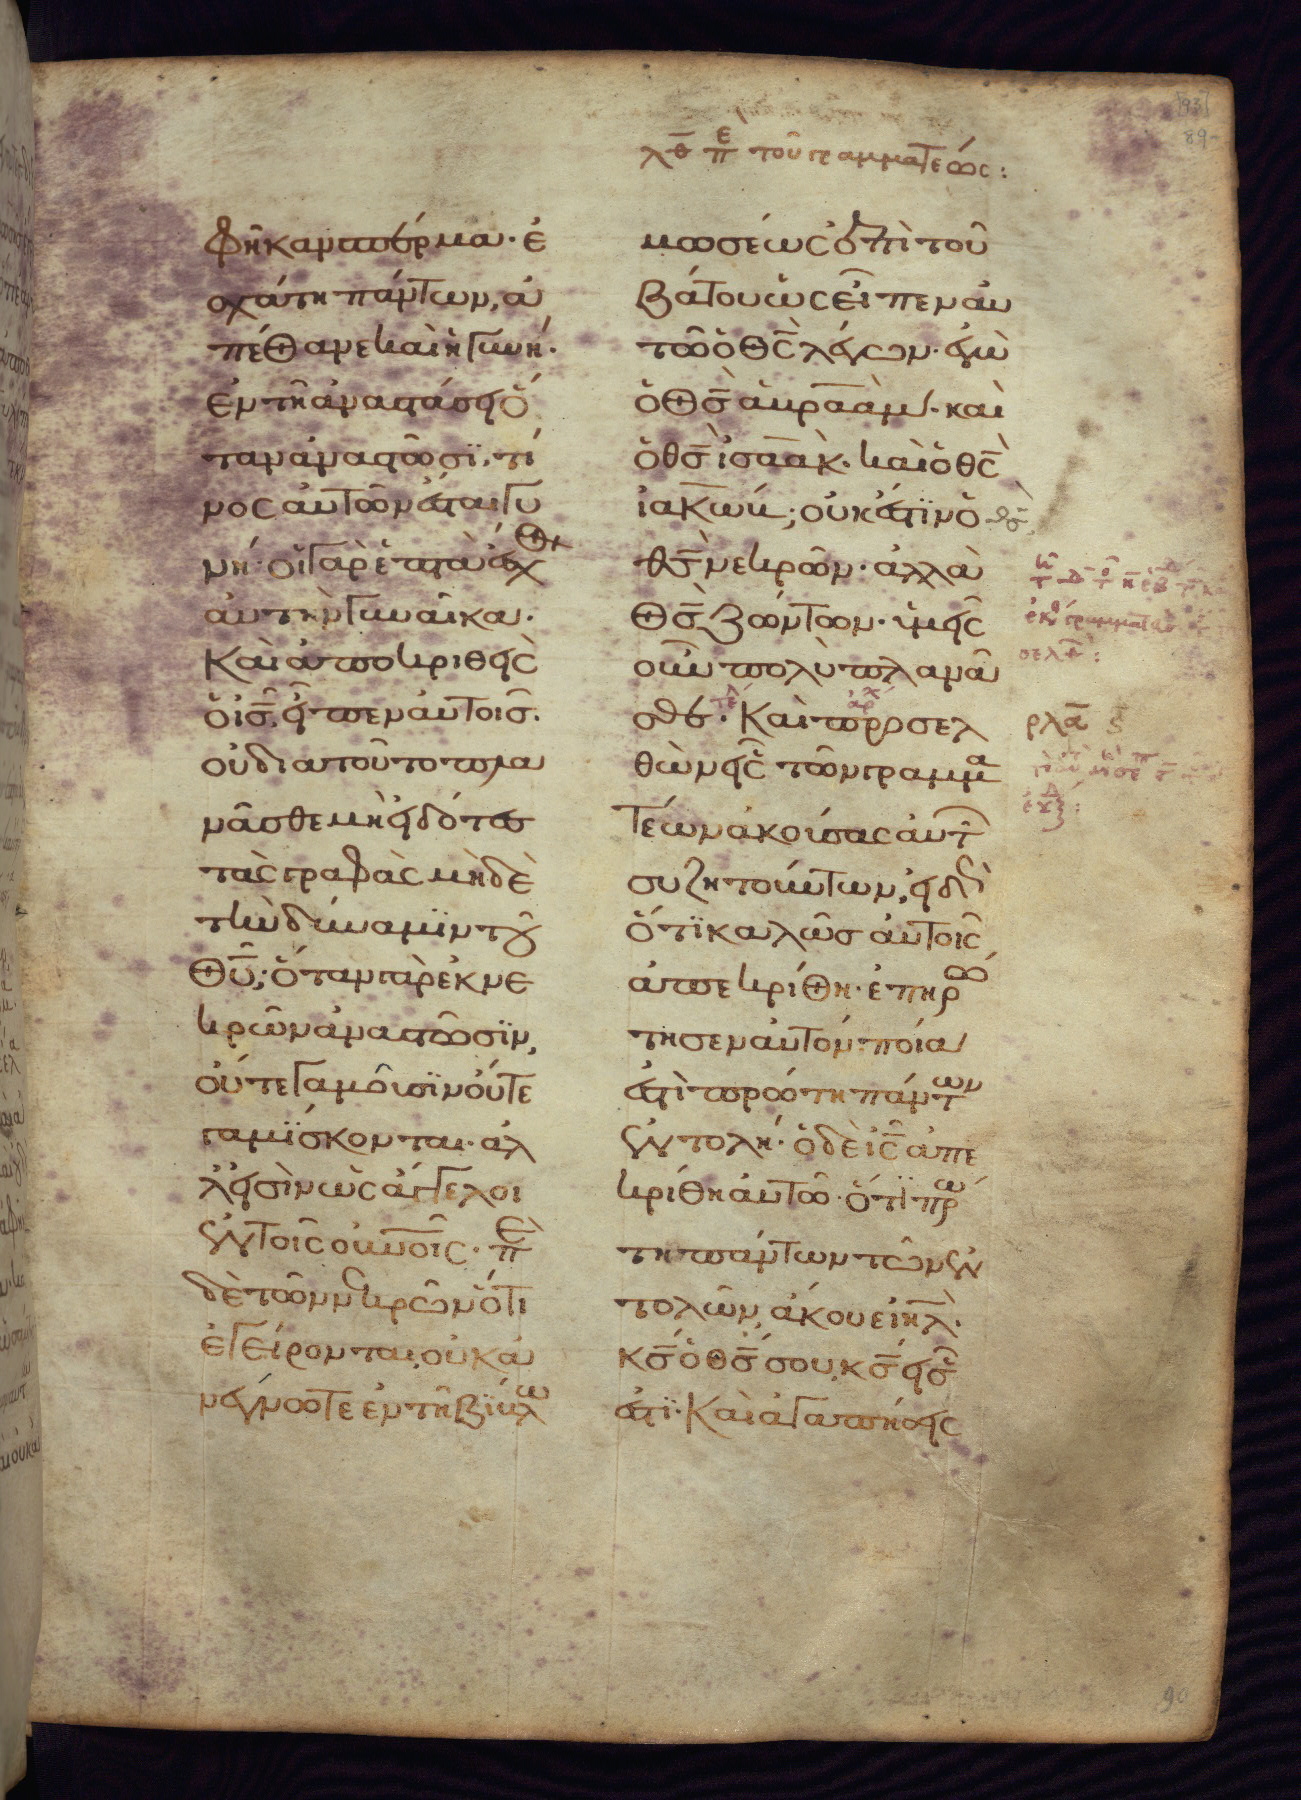 λθ πε τοῦ γραμματέως:
φῆκαν σπέρμα· ἐ
σχάτη πάντων, ἀ
πέθανε καὶ ἡ γυνή·
Ἐν τῇ ἀναστάσει ὅ
ταν ἀναστῶσϊ, τί
νος αὐτῶν ἔσται γυ
νή· οἱ γὰρ ἑπτὰ ἔσχον
αὐτὴν γυναῖκα·
Καὶ ἀποκριθεὶς
ὁ ις̅, εἶπεν αὐτοῖς·
οὐ διατοῦτο πλα
νᾶσθε μὴ εἰδότες
τὰς γραφὰς μηδὲ
τὴν δύναμϊν τοῦ
θυ̅; ὅταν γὰρ ἐκ νε
κρῶν ἀναστῶσϊν,
οὔτε γαμοῦσϊν οὔτε
γαμΐσκονται· ἀλ
λ' εἰσὶν ὡς ἄγγελοι
ἐν τοῖς οὐνοῖς· πε
δὲ τῶν νεκρῶν ὅτι
ἐγείρονται, οὐκ ἀ
νέγνωτε ἐν τῇ βϊβλω
μωσέως ἐπὶ τοῦ
βάτου ὡς εἶπεν αὐ
τῶ ὁ θς̅ λέγων· ἐγὼ
ὁ θς̅ ἀβραὰμ· καὶ
ὁ θς̅ ἰσαὰκ· καὶ ὁ θς̅
ἰακώβ; οὐκ ἔστϊν ὁ
θς̅ νεκρῶν· ἀλλὰ
θς̅ ζώντων· ὑμεῖς
οὖν πολὺ πλανᾶ
σθε· Καὶ προσελ
θὼν εἷς τῶν γραμμα
τέων ἀκούσας αὐτ
συζητούντων, εἰδὼ
ὅτϊ καλῶς αὐτοῖς
ἀπεκρίθη· ἐπηρώ
τησεν αὐτόν· ποία
ἐστὶ πρώτη πάντων
ἐντολή· ὁ δὲ ις̅ ἀπε
κρίθη αὐτῶ· ὅτϊ πρώ
τη πάντων τῶν ἐν
τολῶν, ἄκουε ιηλ̅·
κς̅ ὁ θς̅ σου, κς̅ εἷς
ἐστϊ· Καὶ ἀγαπήσεις
ρλα
90